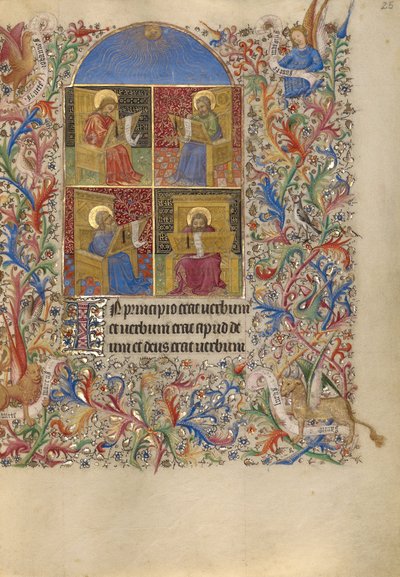 25
In principio erat verbum
et verbum erat apud de
um et deus erat verbum